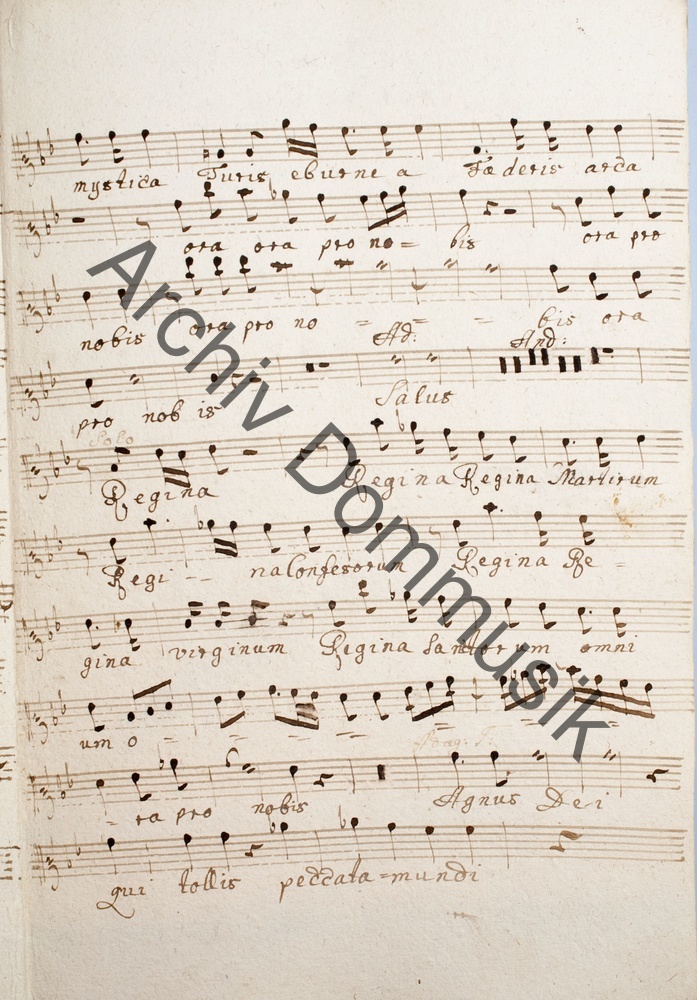 mystica Turis eburne a Fæderis arca
ora ora pro no= bis ora pro
nobis ora pro no - = - bis ora
Ad: And:
pro nob is Salus
Solo
Regina Regina Regina Martirum
Regi - - na Confesorum Regina Re =
gina virginum Regina Santorum omni
um o - = - = = =
= ra pro nobis Agnus Dei
qui tollis peccata=mundi
Archiv Dommusik